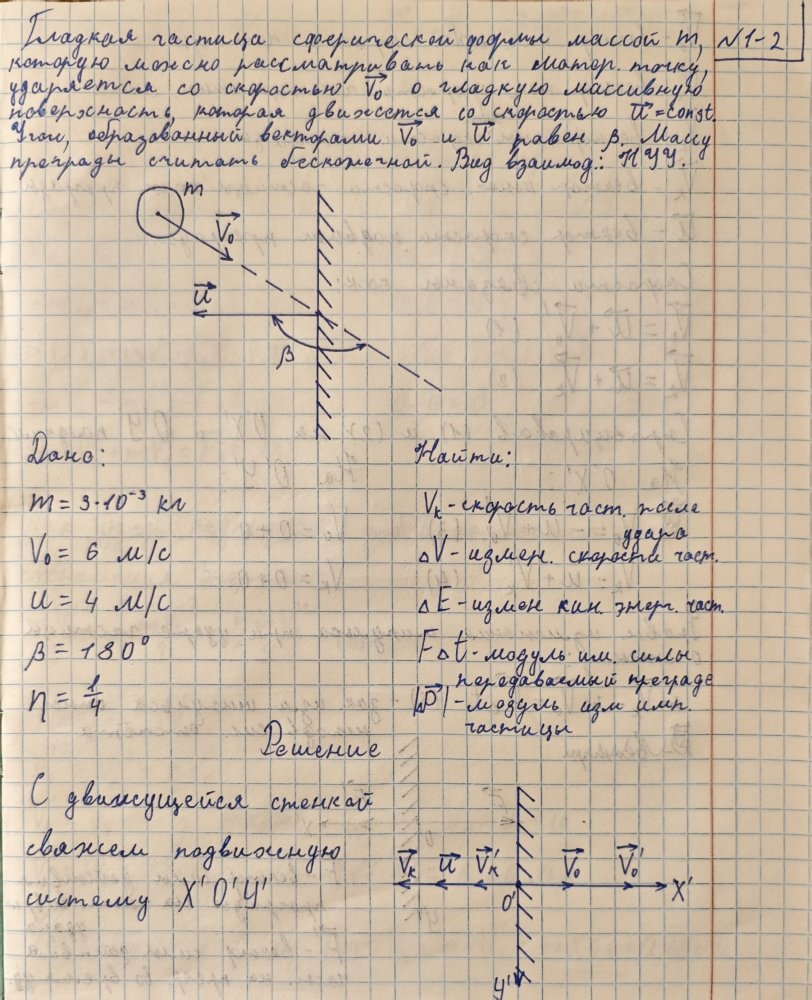 Гладкая частица сферической формы массой m,
N1-2
которую можно рассматривать как матер. точку,
ударяется со скоростью V₀ о гладкую массивную
поверхность, которая движется со скоростью U = const.
Угол, образованный векторами V₀ и U равен β. Массу
преграды считать бесконечной. Вид взаимод.: НУУ.
m
V₀
U
β
Дано:
m = 3·10⁻³ кг
V₀ = 6 м/с
U = 4 м/с
β = 180°
η = 1/4
Найти:
Vк - скорость част. после
удара
ΔV - измен. скорости част.
ΔE - измен кин. энерг. част.
FΔt - модуль им. силы
передаваемый преграде
|ΔP| - модуль изм имп.
частицы
Решение
С движущейся стенкой
свяжем подвижную
систему X'O'Y'
Vк U Vк' V₀ V₀'
O' X'
Y'